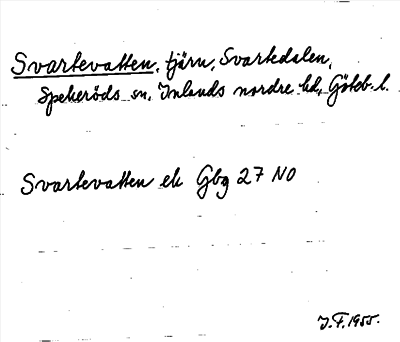 Svartevatten, tjärn, Svartedalen,
Spekeröds sn, Inlands nordre hd, Göteb. l.
Svartevatten ek Gbg 27 NO
J.F. 1955.